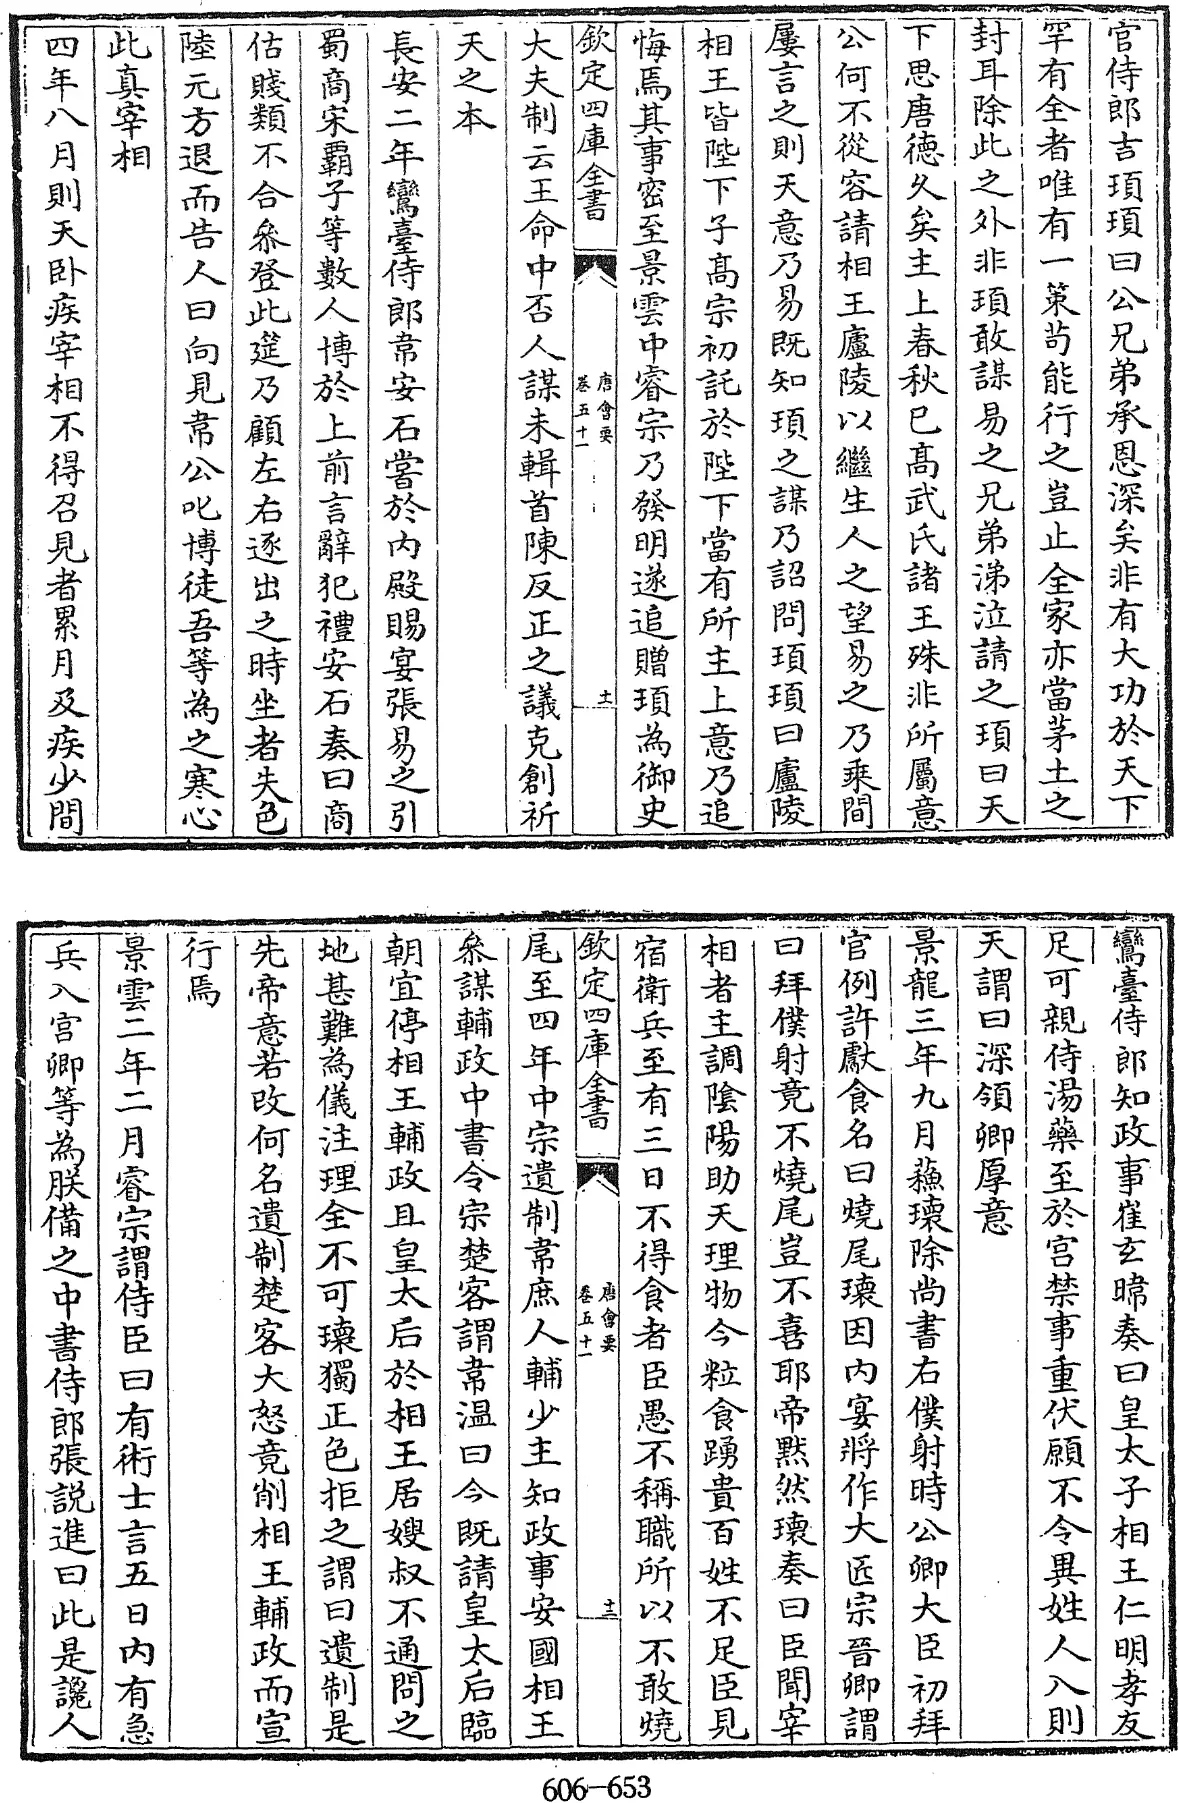 官侍郎吉頊頊曰公兄弟承恩深矣非有大功於天下
罕有全者唯有一策苟能行之豈止全家亦當茅土之
封耳除此之外非頊敢謀易之兄弟涕泣請之頊曰天
下思唐德久矣主上春秋已髙武氏諸王殊非所屬意
公何不從容請相王廬陵以繼生人之望易之乃乘間
屢言之則天意乃易既知頊之謀乃詔問頊頊曰廬陵
相王皆陛下子髙宗初託於陛下當有所主上意乃追
悔焉其事密至景雲中睿宗乃發明遂追贈頊為御史
欽定四庫全書
唐會要
卷五十一
十一
大夫制云王命中否人謀未輯首陳反正之議克創祈
天之本
長安二年鸞臺侍郎韋安石嘗於内殿賜宴張易之引
蜀商宋霸子等數人博於上前言辭犯禮安石奏曰商
估賤類不合叅登此筵乃顧左右逐出之時坐者失色
陸元方退而告人曰向見韋公叱博徒吾等為之寒心
此真宰相
四年八月則天卧疾宰相不得召見者累月及疾少間
鸞臺侍郎知政事崔玄暐奏曰皇太子相王仁明孝友
足可親侍湯藥至於宫禁事重伏願不令異姓人入則
天謂曰深領卿厚意
景龍三年九月蘓瓌除尚書右僕射時公卿大臣初拜
官例許獻食名曰燒尾瓌因内宴將作大匠宗晉卿謂
曰拜僕射竟不燒尾豈不喜耶帝黙然瓌奏曰臣聞宰
相者主調陰陽助天理物今粒食踴貴百姓不足臣見
宿衛兵至有三日不得食者臣愚不稱職所以不敢燒
欽定四庫全書
唐會要
卷五十一
十二
尾至四年中宗遺制韋庶人輔少主知政事安國相王
叅謀輔政中書令宗楚客謂韋温曰今既請皇太后臨
朝宜停相王輔政且皇太后於相王居嫂叔不通問之
地甚難為儀注理全不可瓌獨正色拒之謂曰遺制是
先帝意若改何名遺制楚客大怒竟削相王輔政而宣
行焉
景雲二年二月睿宗謂侍臣曰有術士言五日内有急
兵入宫卿等為朕備之中書侍郎張説進曰此是讒人
606-653